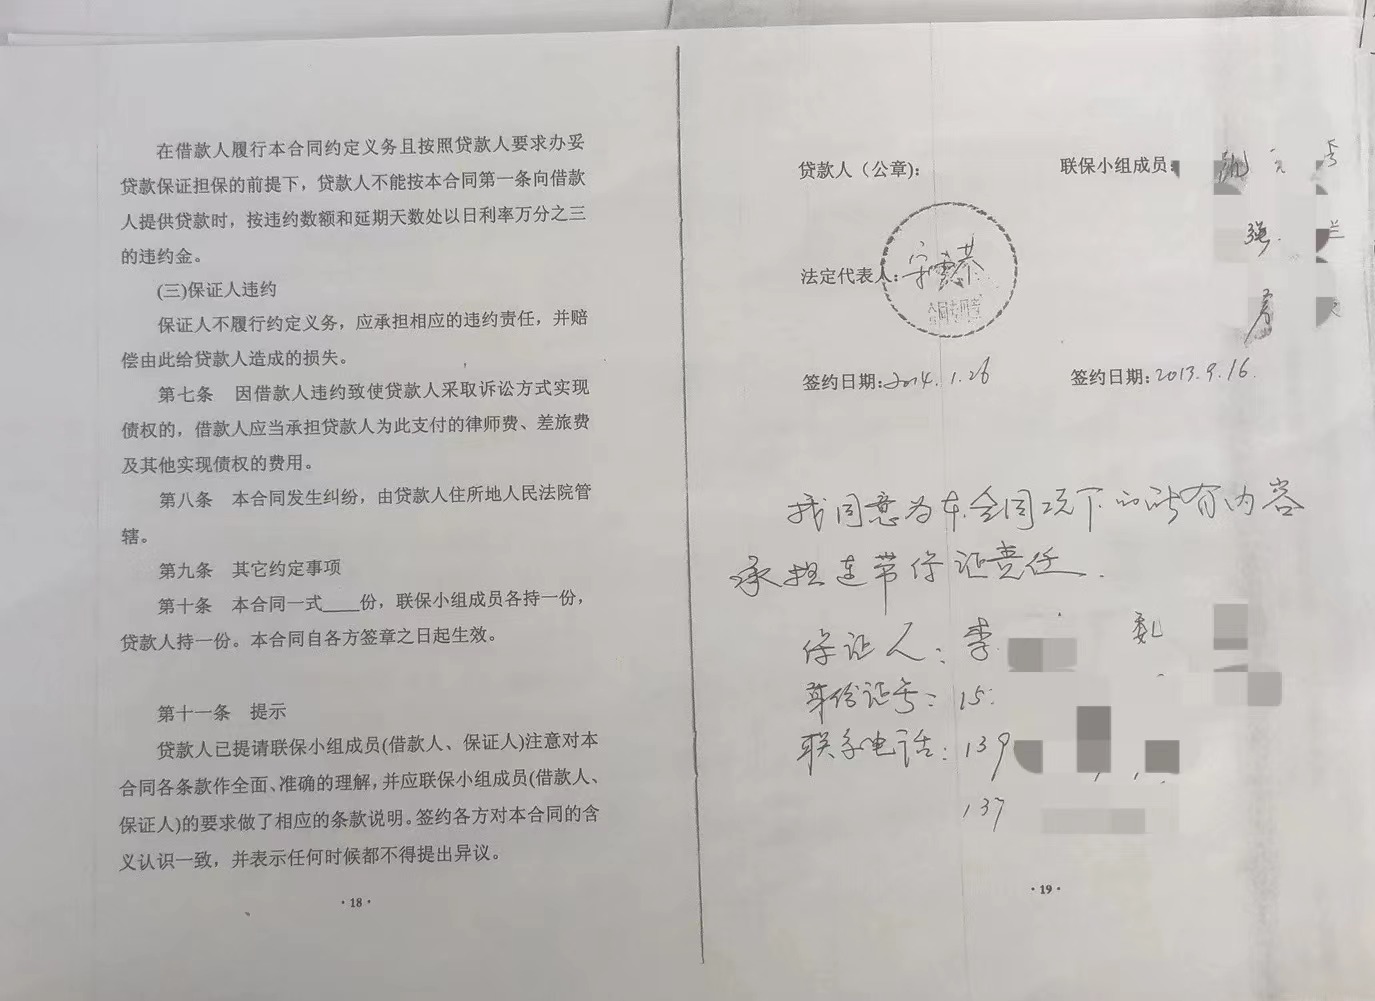 在借款人履行本合同约定义务且按照贷款人要求办妥
贷款保证担保的前提下，贷款人不能按本合同第一条向借款
人提供贷款时，按违约数额和延期天数处以日利率万分之三
的违约金。
(三)保证人违约
保证人不履行约定义务，应承担相应的违约责任，并赔
偿由此给贷款人造成的损失。
第七条　因借款人违约致使贷款人采取诉讼方式实现
债权的，借款人应当承担贷款人为此支付的律师费、差旅费
及其他实现债权的费用。
第八条　本合同发生纠纷，由贷款人住所地人民法院管
辖。
第九条　其它约定事项
第十条　本合同一式____份，联保小组成员各持一份，
贷款人持一份。本合同自各方签章之日起生效。
第十一条　提示
贷款人已提请联保小组成员(借款人、保证人)注意对本
合同各条款作全面、准确的理解,并应联保小组成员(借款人、
保证人)的要求做了相应的条款说明。签约各方对本合同的含
义认识一致，并表示任何时候都不得提出异议。
·18·
贷款人（公章）:
联保小组成员:
强
法定代表人:
合同专用章
签约日期:2014.1.26
签约日期:2013.9.16.
我同意为本合同项下的所有内容
承担连带保证责任.
保证人: 李
身份证号: 15
联系电话: 139
137
·19·